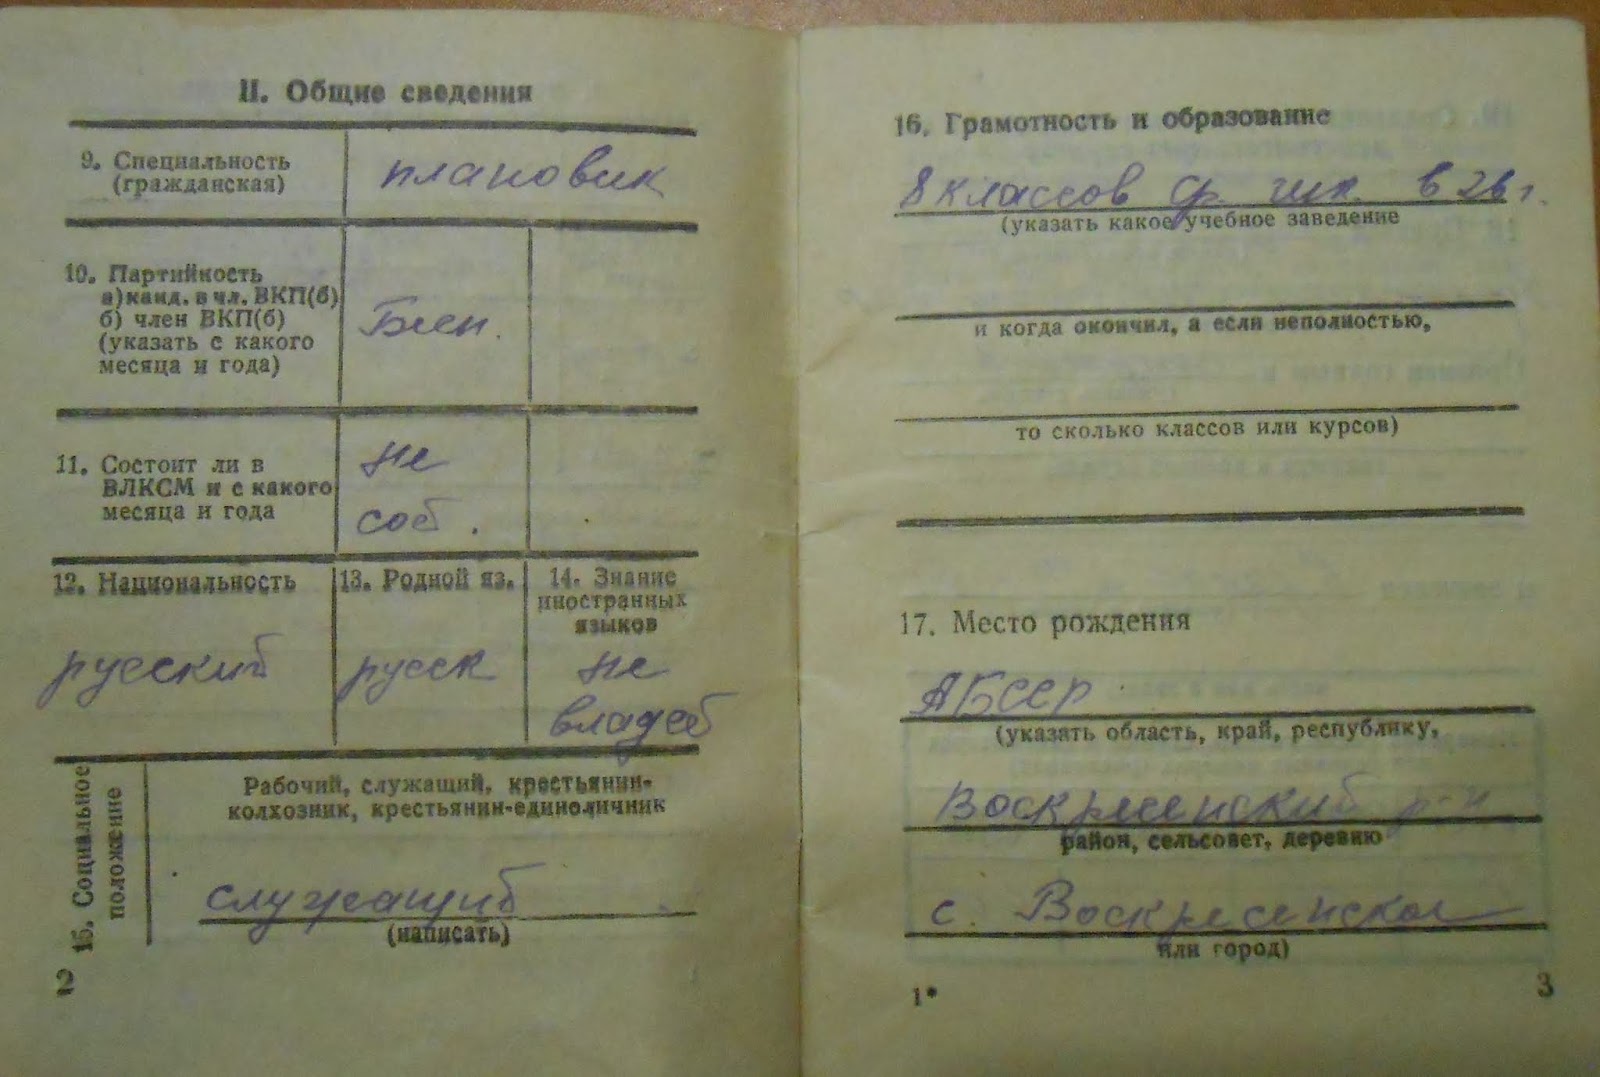 II. Общие сведения
9. Специальность
(гражданская)
плановик
10. Партийность
а) канд. в чл. ВКП(б)
б) член ВКП(б)
(указать с какого
месяца и года)
11. Состоит ли в
ВЛКСМ и с какого
месяца и года
не
12. Национальность
русский
13. Родной яз.
русск
14. Знание
иностранных
языков
не
владеет
15. Социальное
положение
Рабочий, служащий, крестьянин-
колхозник, крестьянин-единоличник
служащий
(написать)
2
16. Грамотность и образование
8 классов ф. шк. в 26 г.
(указать какое учебное заведение
и когда окончил, а если неполностью,
то сколько классов или курсов)
17. Место рождения
АБССР
(указать область, край, республику,
Воскресенский р-н
район, сельсовет, деревню
с. Воскресенское
или город)
1*
3